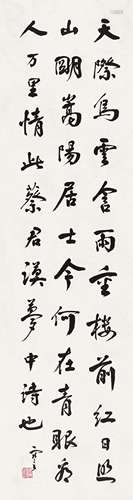 天際烏雲含雨重樓前紅日照
山朙嵩陽居士今何在青眼看
人万里情此蔡君謨夢中詩也